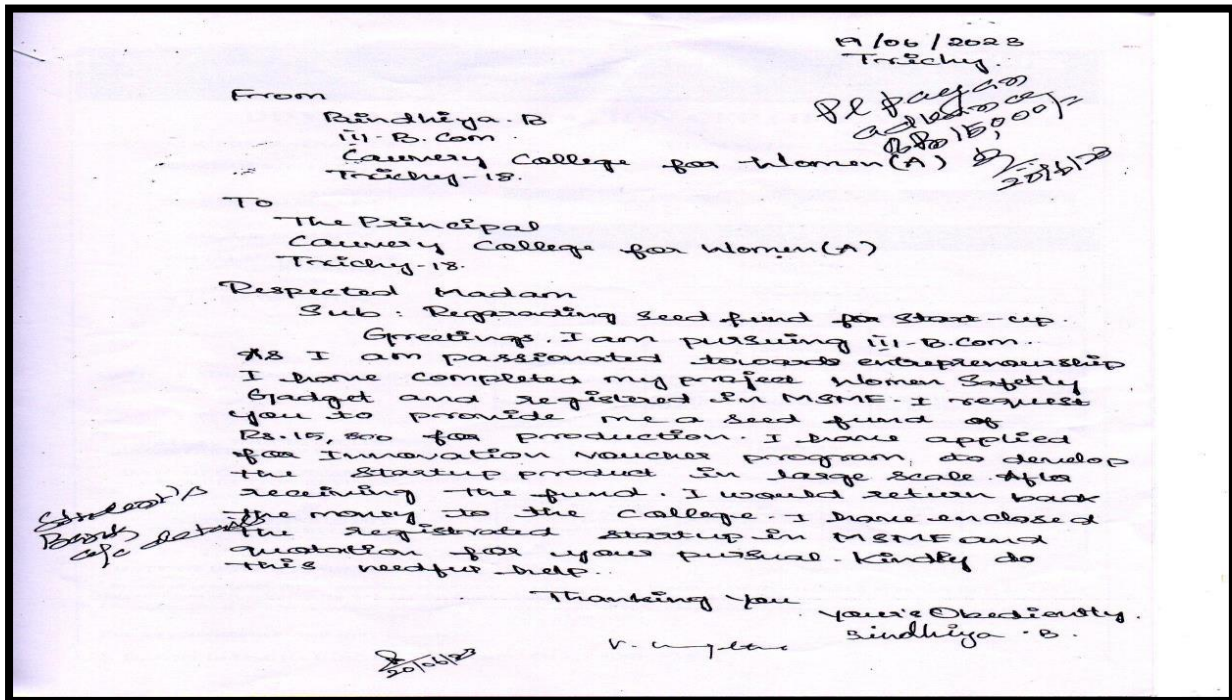 19/06/2023
Trichy
Pl pay an
advance
of Rs 15,000/=
20/6/23
From
Bindhiya.B
III-B.Com
Cauvery College for Women(A)
Trichy-18.
To
The Principal
Cauvery College for Women(A)
Trichy-18.
Respected Madam
Sub : Regarading seed fund for start-up.
Greetings. I am pursuing III-B.Com.
As I am passionated towards entrepreneurship
I have completed my project Women Safetly
Gadget and registered in MSME. I request
you to provide me a seed fund of
Rs.15,300 for production. I have applied
for Innovation voucher program, to develop
the startup product in large scale. After
receiving the fund. I would return back
the money to the college. I have enclosed
the registrated startup in MSME and
quotation for your pursual. Kindly do
this needful help.
Student's
Bank
a/c details
Thanking you
Your's Obediently.
Bindhiya.B.
20/06/23